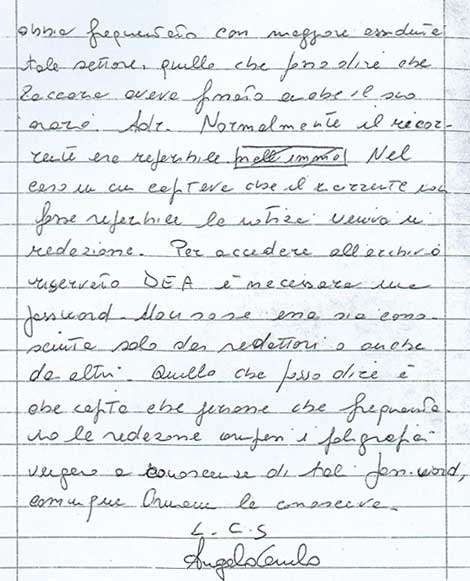 abbia frequentato con maggiore assiduità
tale settore, quello che posso dire che
Zaccaria aveva fissato anche il suo
orario. Adr. Normalmente il ricor-
rente era reperibile Nel
caso in cui capitava che il ricorrente non
fosse reperibile le notizie veniva in
redazione. Per accedere all'archivio
riservato DEA è necessaria una
password. Non so se essa sia cono-
sciuta solo dai redattori o anche
da altri. Quello che posso dire è
che capita che persone che frequenta-
no le redazione compresi i poligrafici
vengano a conoscenza di tal password,
comunque le conosceva.
L.C.S